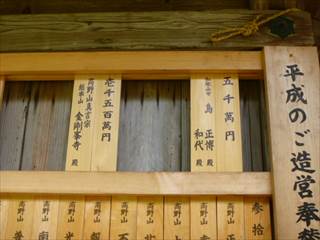 平成のご造営奉賛
五千萬円
島 正博 殿
和代 殿
壱千五百萬円
高野山真言宗
総本山 金剛峯寺 殿
参拾
高野山
高野山
高野山
高野山
高野山
高野山
高野山 南
高野山 普